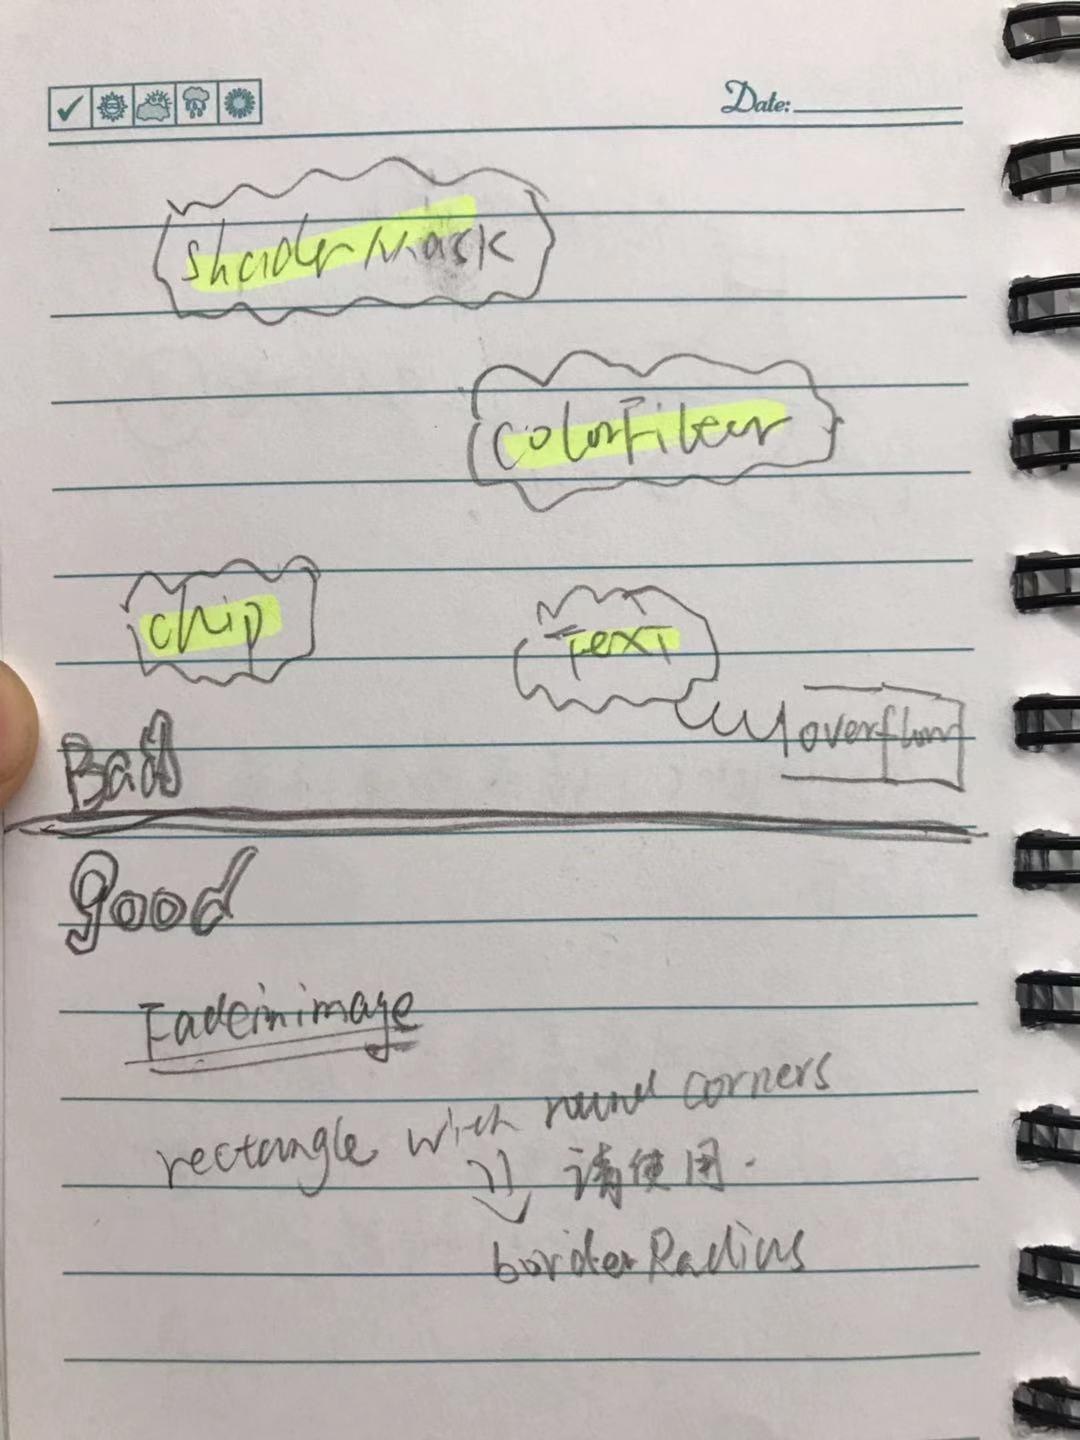 Date:
shaderMask
colorFilter
chip
Text
overflow
Bad
good
Fadeinimage
rectangle with round corners
请使用.
borderRadius